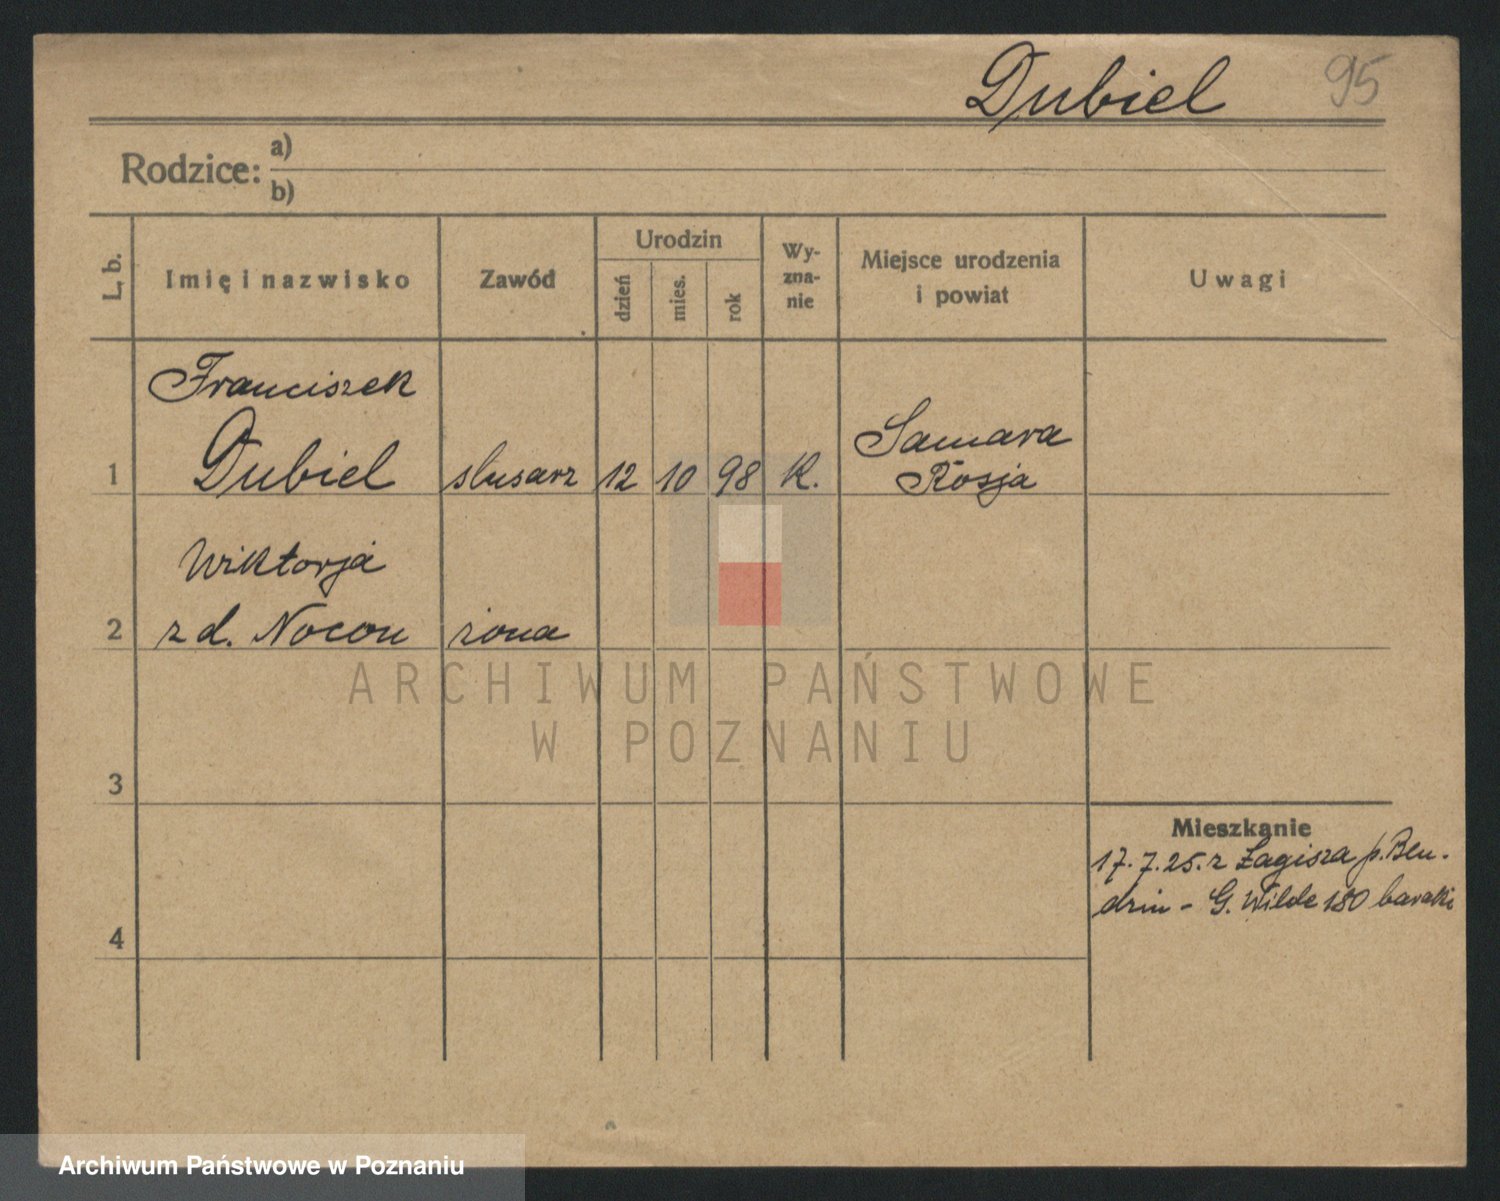 Dubiel 95
Rodzice: a)
b)
L. b. Imię i nazwisko Zawód Urodzin dzień mies. rok Wy-zna-nie Miejsce urodzenia i powiat Uwagi
Franciszek
1 Dubiel slusarz 12 10 98 K. Samara Rosja
Wiktorja
2 z d. Nocon żona
ARCHIWUM PAŃSTWOWE
W POZNANIU
3
Mieszkanie
17.7.25. z Łagisza p. Ben-
4 dzin - G. Wilde 180 baraki
Archiwum Państwowe w Poznaniu